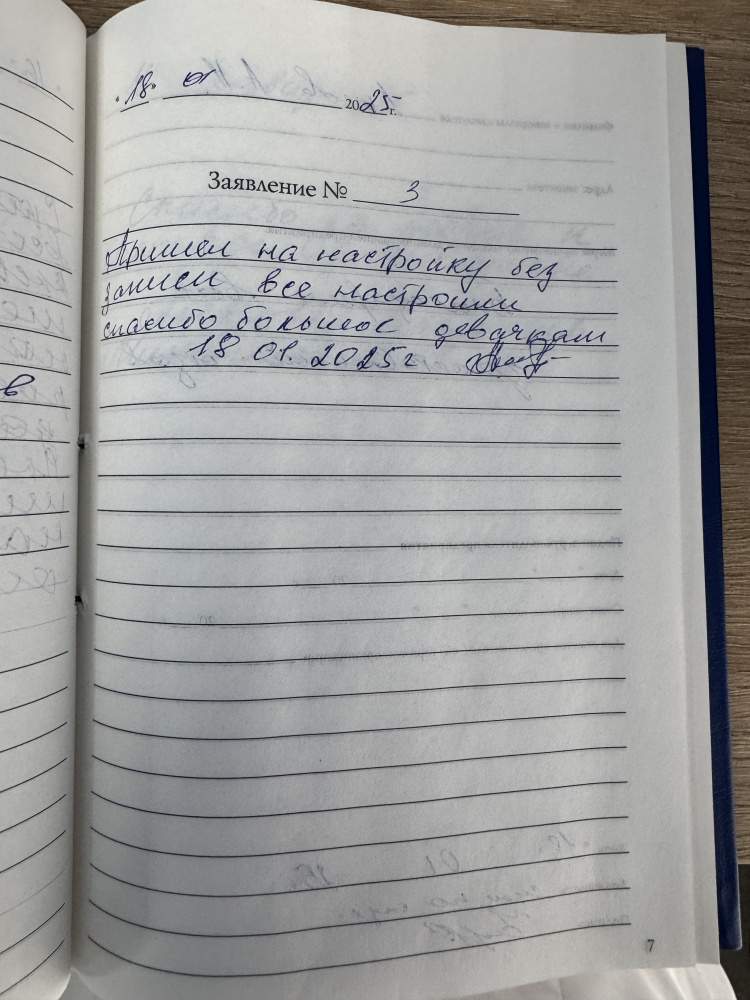 "18" 01 2025г.
Заявление № 3
Пришел на настройку без
записи все настроили
спасибо большое девачкам
18 01. 2025г
7